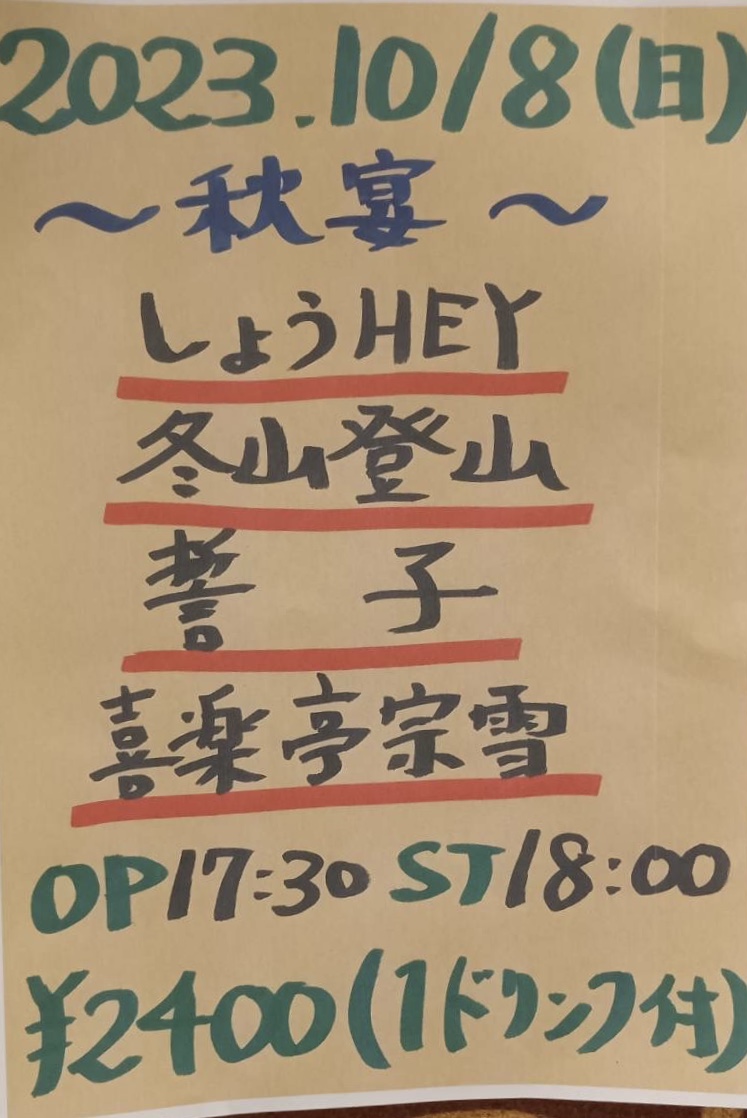 2023.10/8(日)
～秋宴～
しょうHEY
冬山登山
誓 子
喜楽亭宗雪
OP17:30 ST18:00
¥2400(1ドリンク付)